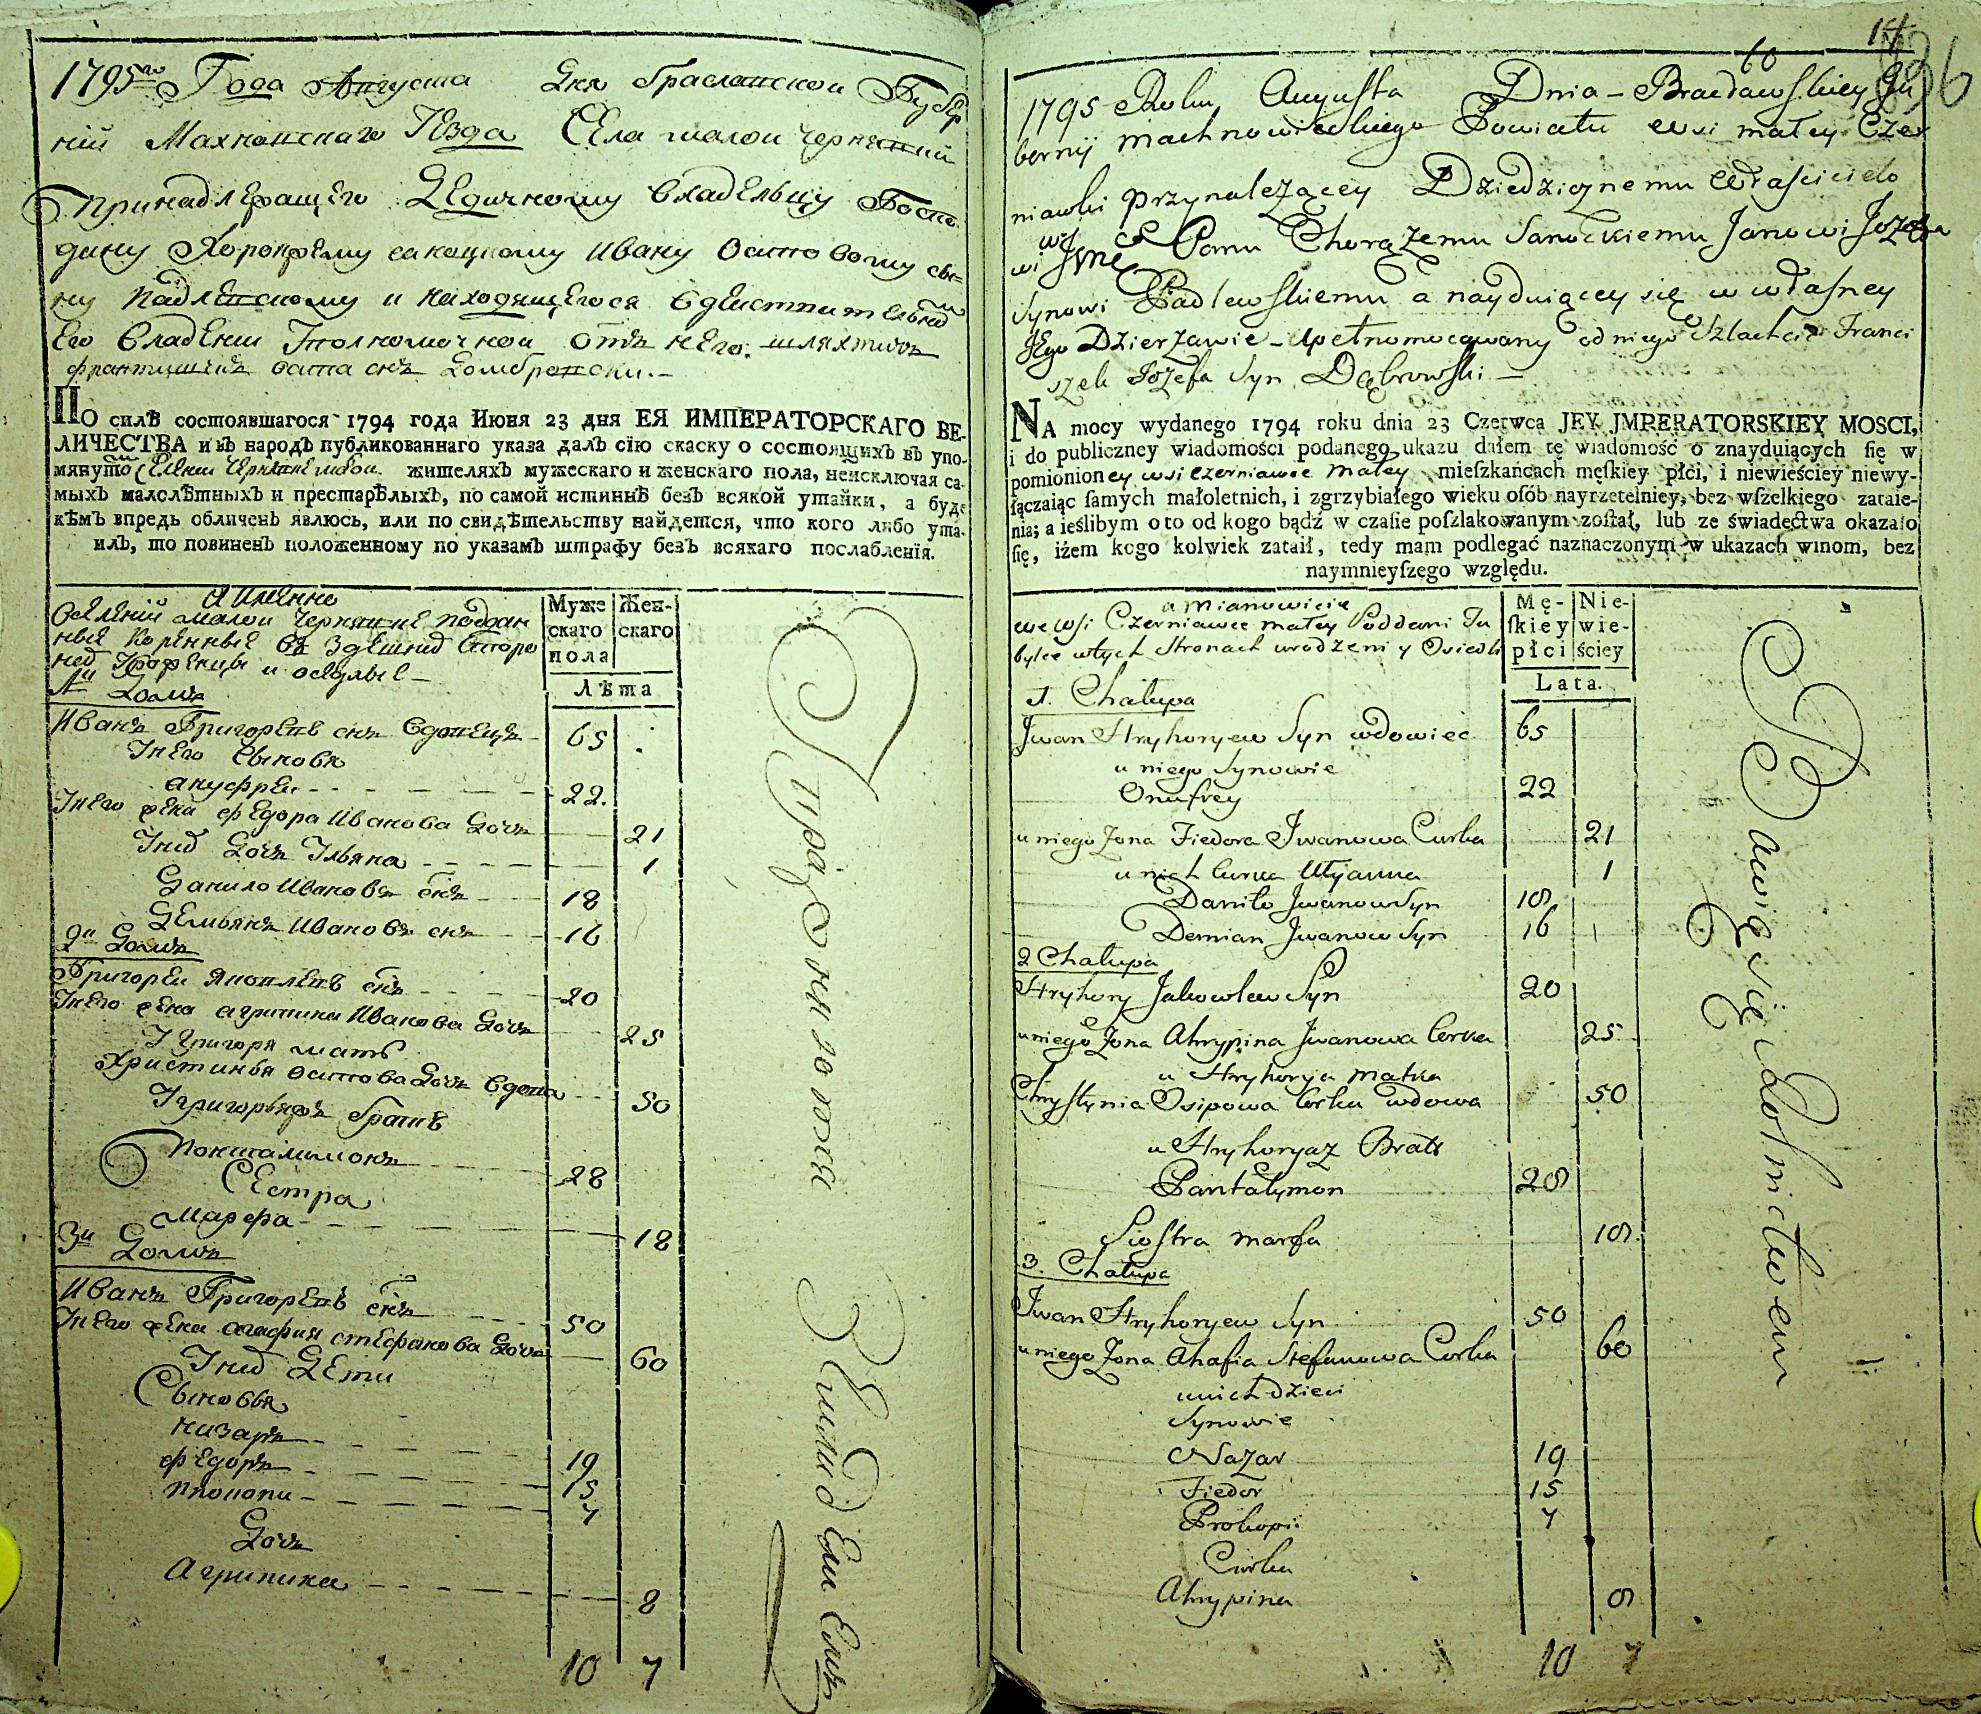 1795го Года Августа Дня Браславской Губер
нiй Махновскаго Уезда Села малой Чернявки
Принадлежащего Дедичному Владельцу Госпо
дину Хоронжему саноцкому Ивану Осипо вому сы
ну Падлевскому и находящегося вдействительном
Его Владении Уполномочной отъ него шляхтичь
францишекъ осипа снъ Домбровски.
ПО силѣ состоявшагося 1794 года Июня 23 дня ЕЯ ИМПЕРАТОРСКАГО ВЕ-
ЛИЧЕСТВА и въ народъ публикованнаго указа далъ сïю скаску о состоящихъ въ упо-
мянутом Селении Чернявке малой жителяхъ мужескаго и женскаго пола, неисключая са-
мыхъ малолѣтныхъ и престарѣлыхъ, по самой истиннѣ безъ всякой утайки, а буде
кѣмъ впредь обличенъ явлюсь, или по свидѣтельству найдется, что кого либо ута-
илъ, то повиненъ положенному по указамъ штрафу безъ всякаго послабленïя.
А имянно
Вселений малой Чернявке поддан
ные коренные въ здешней сторо
не урожденцы и оседлые
Муже
скаго
пола
Жен-
скаго
Лѣта
1й Домъ
Иванъ Григорьевъ снъ вдовецъ 65
Унего сыновья
ануфрей 22.
Унего жена федора Иванова дочь 21
Уних дочь Ульяна 1
Данило Ивановъ снъ 18
Демьянъ Ивановъ снъ 16
2й Домъ
Григорей Яковлевъ снъ 20
Унего жена агрипина Иванова дочь 25
У Григоря мать
Христинья осипова дочь вдова 50
Угригорьяжъ братъ
Понталимонъ 28
Сестра
Марфа 18
3й Домъ
Иванъ Григоревъ снъ 50
Унего жена агафия стефанова дочь 60
Уних Дети
Сыновья
назаръ 19
федоръ 15
прокопи 7
Дочь
Агрипина 8
10 7
14
1795 Roku Augusta 10 Dnia Bracławskiey Gu
bernij machnowieckiego Powiatu wsi małey Czer
niawki przynależącey Dziedzicznemu Właścicielo
wi Jmć Panu Chorążemu Sanockiemu Janowi Józefa
Synowi Padlewskiemu a nayduiącey się w własney
Jego Dzierzawie upełnomocowany od niego Szlachcic Franci
szek Jozefa Syn Dąbrowski
NA mocy wydanego 1794 roku dnia 23 Czerwca JEY JMPERATORSKIEY MOSCI,
i do publiczney wiadomości podanego ukazu dałem tę wiadomość o znayduiących ſię w
pomionioney wsi czerniawce małey mieſzkańcach męſkiey płci, i niewieściey niewy-
łączaiąc ſamych małoletnich, i zgrzybiałego wieku oſób nayrzetelniey, bez wſzelkiego zataie-
nia; a ieślibym o to od kogo bądź w czaſie poſzlakowanym zoſtał, lub ze świadectwa okazało
ſię, iżem kogo kolwiek zataił, tedy mam podlegać naznaczonym w ukazach winom, bez
naymnieyſzego względu.
a mianowicie
we wsi Czerniawce małey Poddani Tu
bylce wtych stronach urodzeni y Osiedli
Mę-
ſkiey
płci
Nie-
wie-
ściey
Lata.
1. Chałupa
Jwan Hryhoryew Syn wdowiec 65
u niego Synowie
Onufrey 22
u niego Zona Fiedora Jwanowa Curka 21
u nich Curka Ulyanna 1
Daniło Jwanow Syn 18
Demian Jwanow Syn 16
2 Chałupa
Hryhory Jakowlew Syn 20
u niego Zona Ahrypina Jwanowa Corka 25
u Hryhorya matka
Chrystynia Osipowa Corka wdowa 50
u Hryhoryaz Brat
Pantalymon 28
Siostra marfa 18
3. Chałupa
Jwan Hryhoryew Syn 50
u niego Zona Ahafia Stefanowa Curka 60
unich dzieci
Synowie
Nazar 19
Fiedor 15
Prokopii 7
Curka
Ahrypina 8
10 7